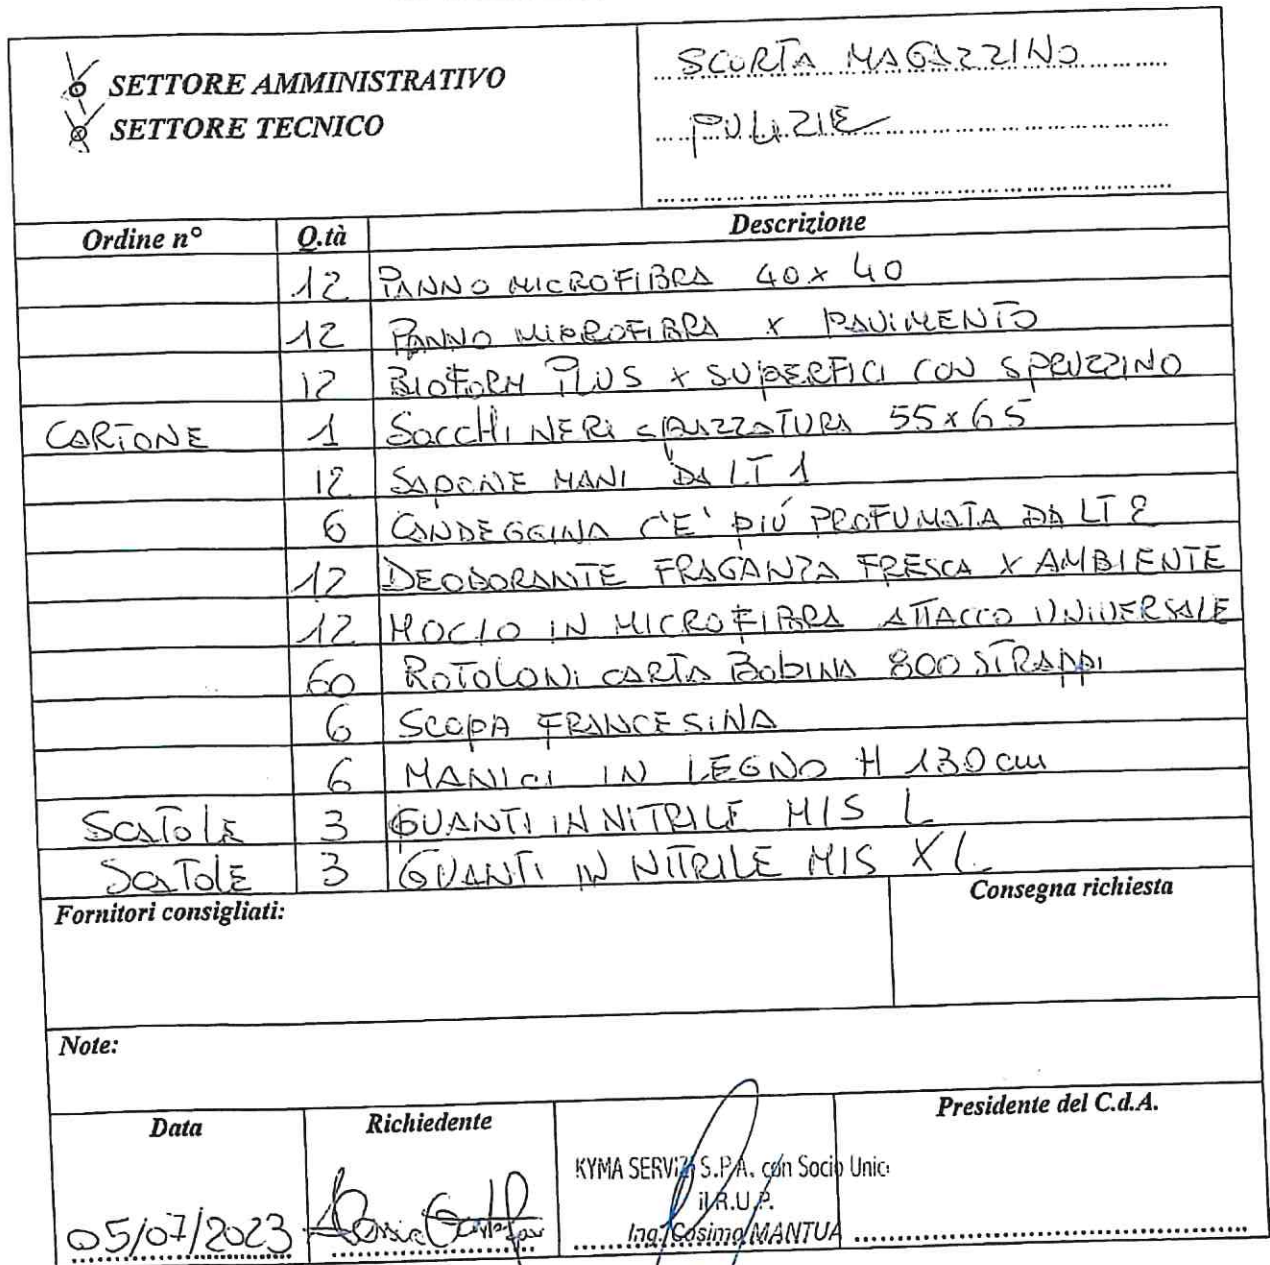 SETTORE AMMINISTRATIVO
SETTORE TECNICO
SCORTA MAGAZZINO
PULIZIE
Ordine n° Q.tà Descrizione
12 PANNO MICROFIBRA 40 x 40
12 PANNO MICROFIBRA x PAVIMENTO
12 BIOFORM PLUS x SUPERFICI CON SPRUZZINO
CARTONE 1 SACCHI NERI SPAZZATURA 55x65
12 SAPONE MANI DA LT 1
6 CANDEGGINA C'E' PIÚ PROFUMATA DA LT 2
12 DEODORANTE FRAGANZA FRESCA X AMBIENTE
12 MOCIO IN MICROFIBRA ATTACCO UNIVERSALE
60 ROTOLONI CARTA BOBINA 800 STRAPPI
6 SCOPA FRANCESINA
6 MANICI IN LEGNO H 130 cm
SCATOLE 3 GUANTI IN NITRILE MIS L
SCATOLE 3 GUANTI IN NITRILE MIS XL
Fornitori consigliati: Consegna richiesta
Note:
Data Richiedente Presidente del C.d.A.
KYMA SERVIZI S.P.A. con Socio Unic
il R.U.P.
Ing. Cosimo MANTUA
05/07/2023